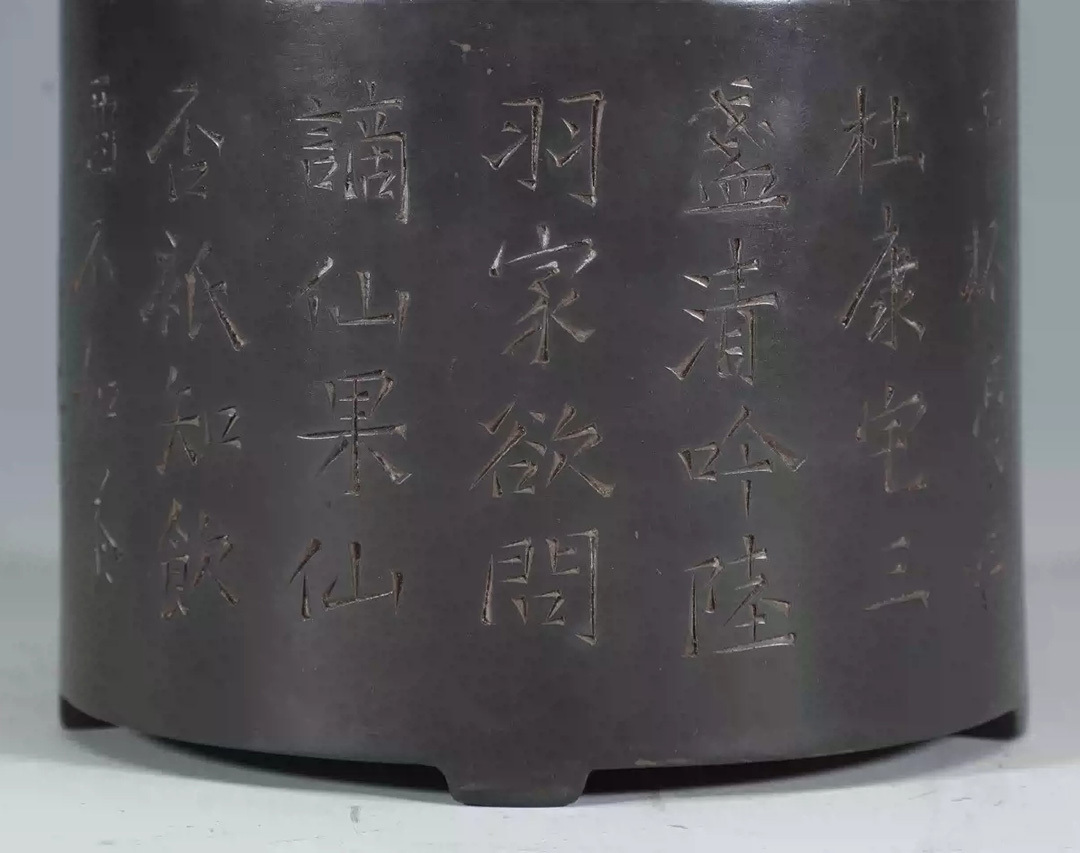 杜康宅三
盞清吟陸
羽家欲問
謫仙果仙
否祇知飲
酒不知茶